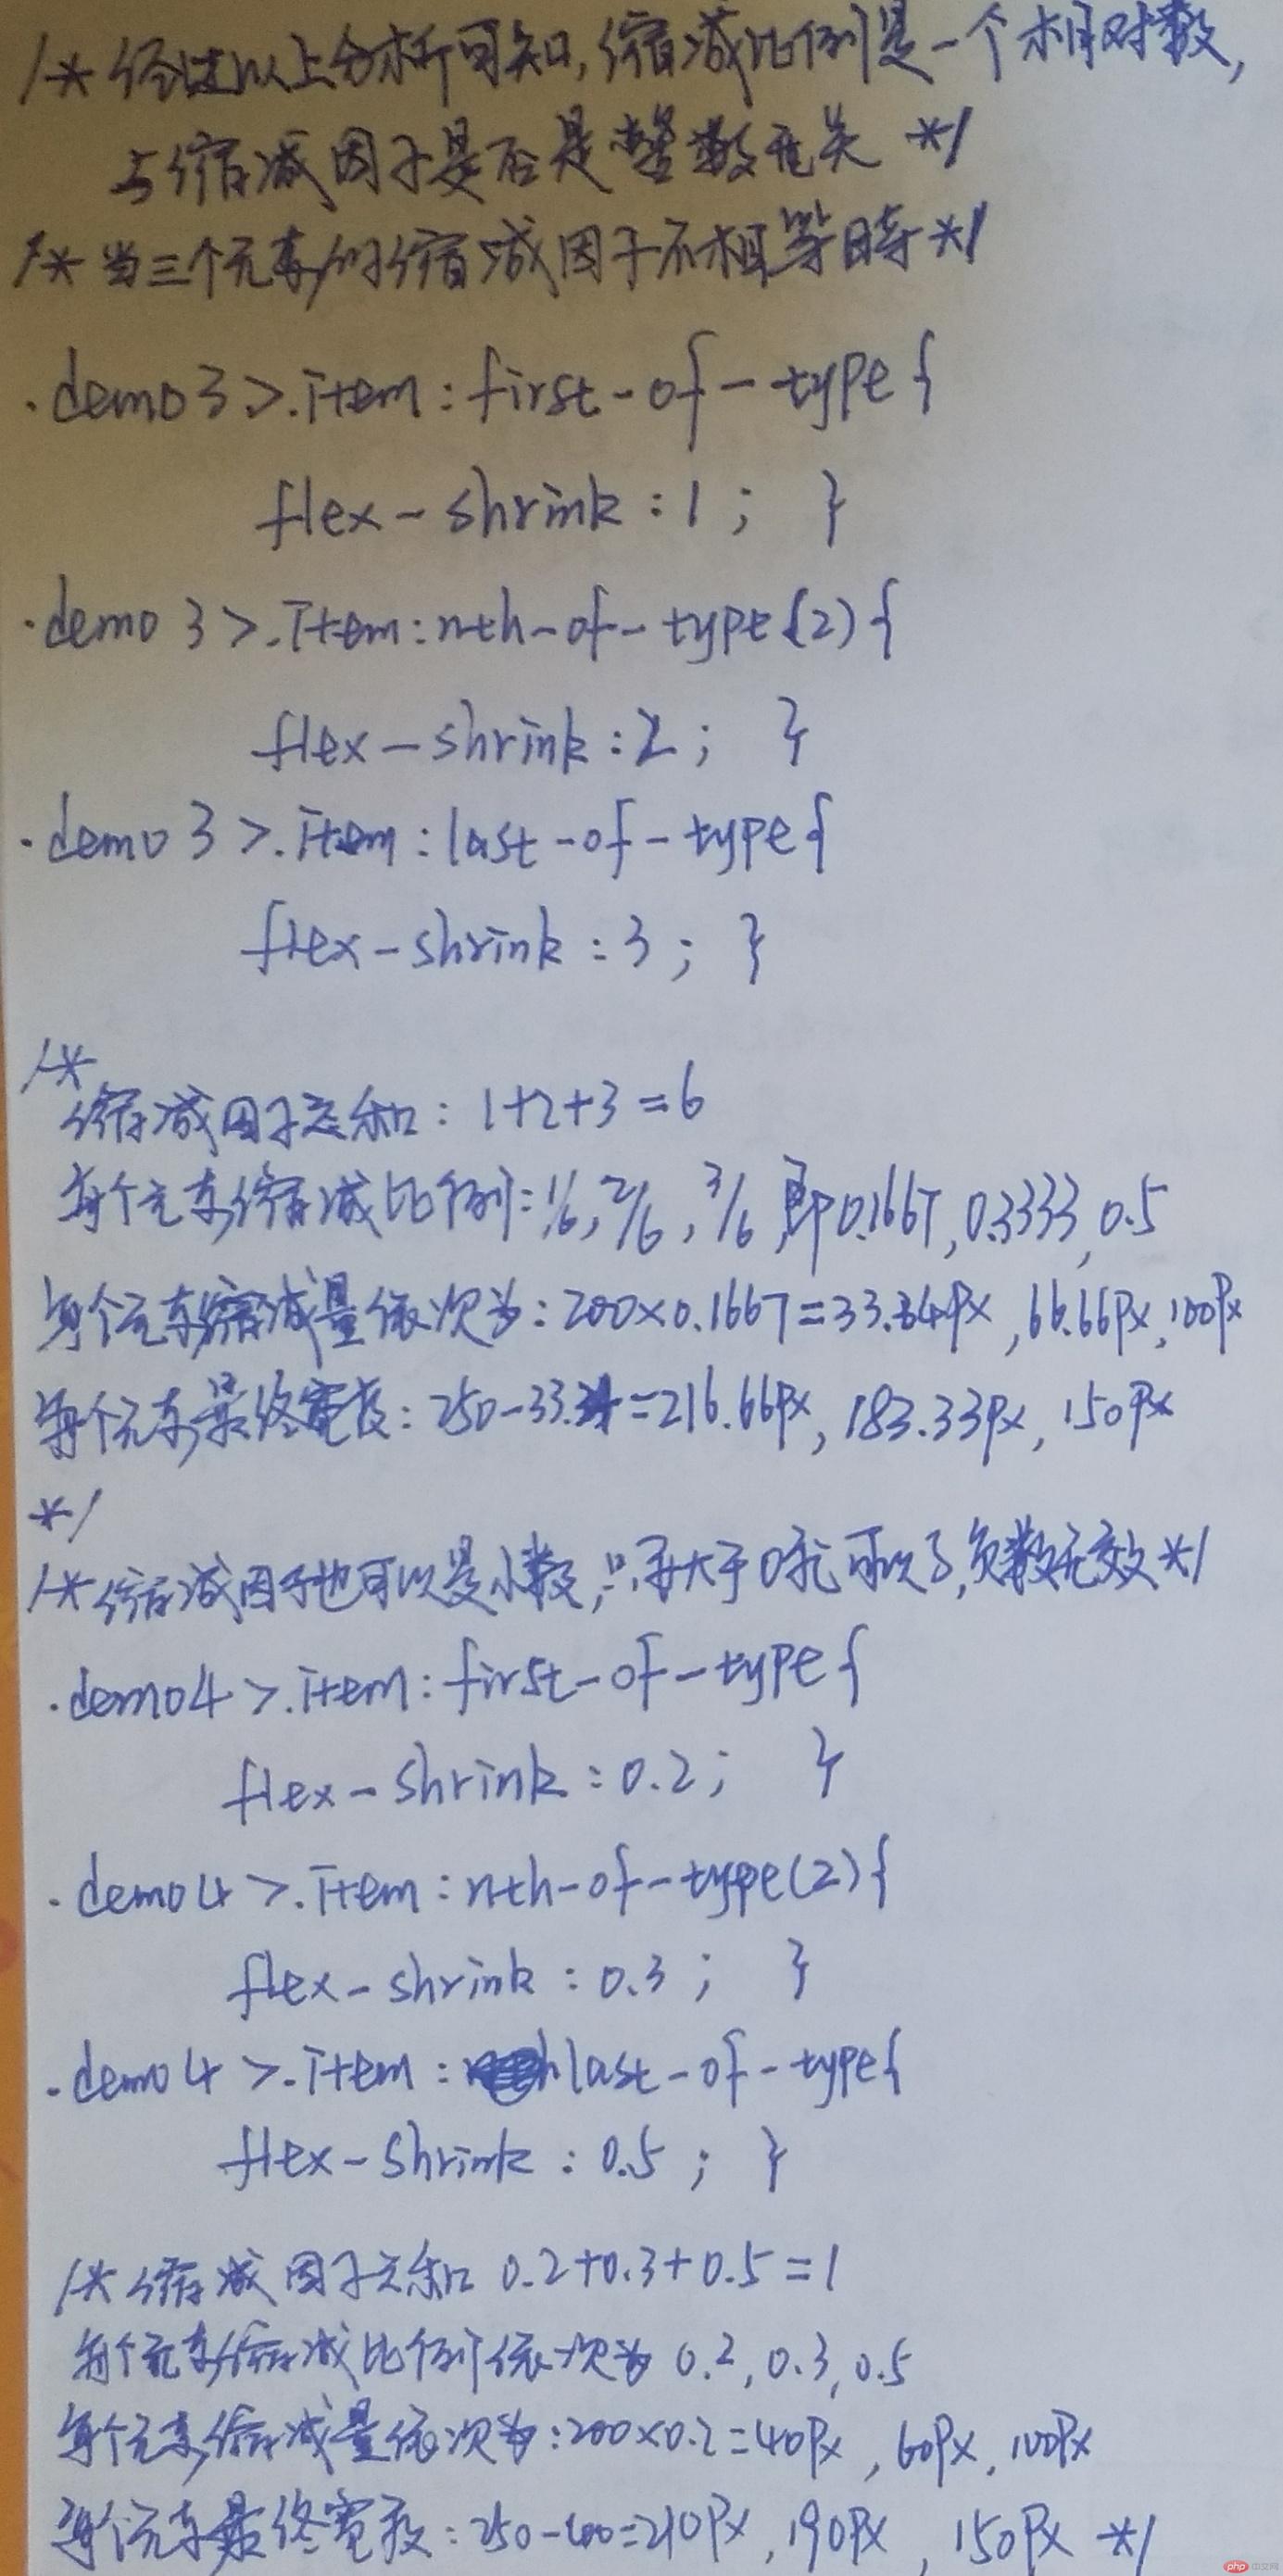 /* 经过以上分析可知,缩减比例是一个相对数,
与缩减因子是否是整数无关 */
/* 当三个元素的缩减因子不相等时 */
.demo3>.item:first-of-type{
flex-shrink:1; }
.demo3>.item:nth-of-type(2){
flex-shrink:2; }
.demo3>.item:last-of-type{
flex-shrink:3; }
/*
缩减因子之和: 1+2+3=6
每个元素缩减比例:1/6,2/6,3/6,即0.1667,0.3333,0.5
每个元素缩减量依次为:200×0.1667=33.34px,66.66px,100px
每个元素最终宽度:250-33.34=216.66px,183.33px,150px
*/
/*缩减因子也可以是小数,只要大于0就可以了,负数无效*/
.demo4>.item:first-of-type{
flex-shrink:0.2; }
.demo4>.item:nth-of-type(2){
flex-shrink:0.3; }
.demo4>.item:last-of-type{
flex-shrink:0.5; }
/*缩减因子之和 0.2+0.3+0.5=1
每个元素缩减比例依次为 0.2,0.3,0.5
每个元素缩减量依次为:200×0.2=40px,60px,100px
每个元素最终宽度:250-40=210px,190px,150px */
php 中文网